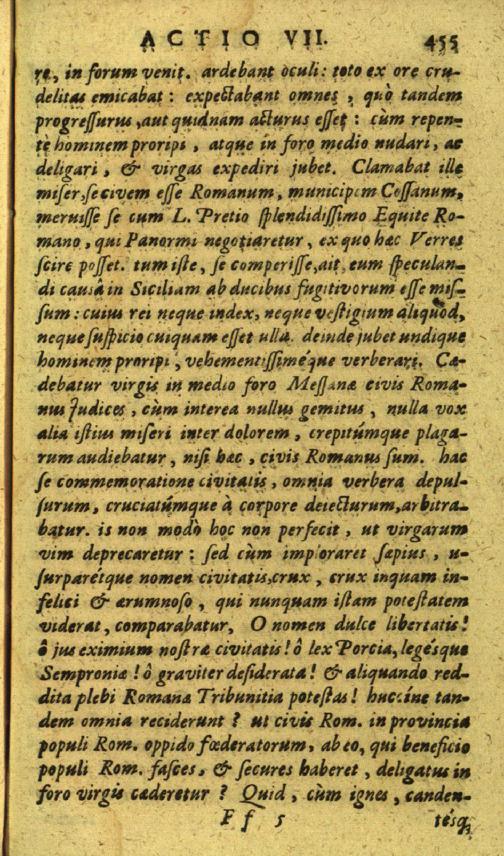 ACTIO VII. 455
re, in forum venit. ardebant oculi: toto ex ore cru-
delitas emicabat: expectabant omnes, quò tandem
progreſſurus, aut quidnam acturus eſſet: cùm repen-
tè hominem proripi, atque in foro medio nudari, ac
deligari, & virgas expediri jubet. Clamabat ille
miſer, ſe civem eſſe Romanum, municipem Coſſanum,
meruiſſe ſe cum L. Pretio ſplendidiſſimo Equite Ro-
mano, qui Panormi negotiaretur, ex quo hæc Verres
ſcire poſſet. tum iſte, ſe comperiſſe, ait, eum ſpeculan-
di causâ in Siciliam ab ducibus fugitivorum eſſe miſ-
ſum: cuius rei neque index, neque veſtigium aliquod,
neque ſuſpicio cuiquam eſſet ulla. deinde jubet undique
hominem proripi, vehementiſſiméque verberari. Cæ-
debatur virgis in medio foro Meſſanæ civis Roma-
nus Judices, cùm interea nullus gemitus, nulla vox
alia iſtius miſeri inter dolorem, crepitúmque plaga-
rum audiebatur, niſi hæc, civis Romanus ſum. hac
ſe commemoratione civitatis, omnia verbera depul-
ſurum, cruciatúmque à corpore deiecturum, arbitra-
batur. is non modò hoc non perfecit, ut virgarum
vim deprecaretur: ſed cùm imploraret ſæpius, u-
ſurparétque nomen civitatis, crux, crux inquam in-
felici & ærumnoſo, qui nunquam iſtam poteſtatem
viderat, comparabatur. O nomen dulce libertatis!
ô jus eximium noſtræ civitatis! ô lex Porcia, legésque
Semproniæ! ô graviter deſiderata! & aliquando red-
dita plebi Romanæ Tribunitia poteſtas! huccine tan-
dem omnia reciderunt? ut civis Rom. in provincia
populi Rom. oppido fœderatorum, ab eo, qui beneficio
populi Rom. faſces, & ſecures haberet, deligatus in
foro virgis cæderetur? Quid, cùm ignes, canden-
F f 5 tésq;